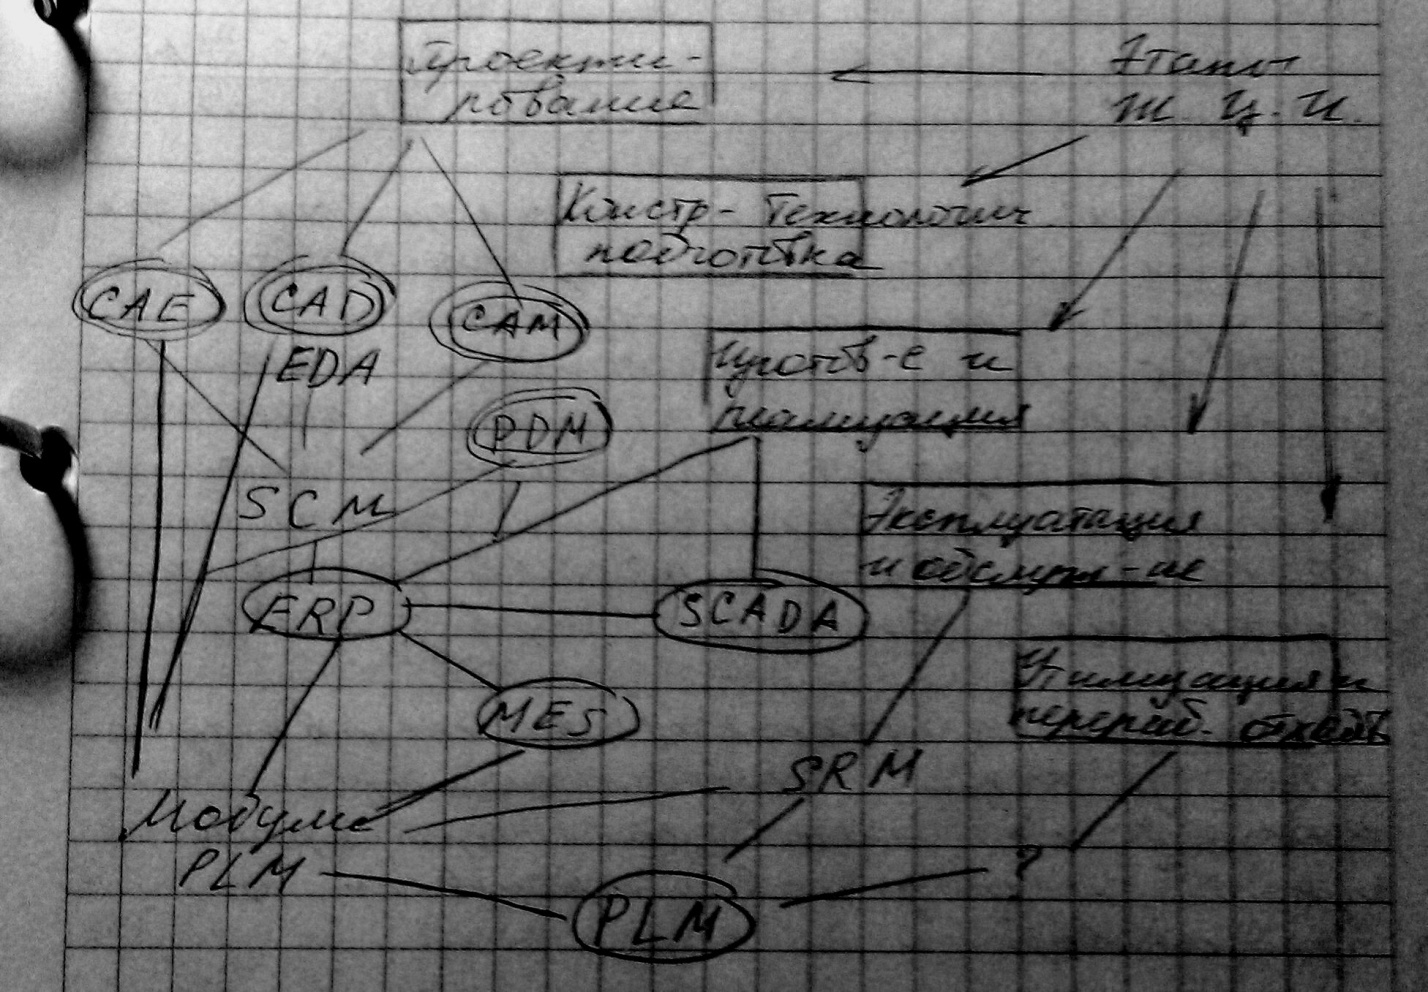 Проекти-
рование
Этапы
Ж. Ц. И.
Констр- Технологич
подготовка
CAE
CAD
CAM
EDA
Изготов-е и
реализация
PDM
SCM
Эксплуатация
и обслуж-ие
ERP
SCADA
Утилизация и
перераб. отходов
MES
SRM
Модули
PLM
?
PLM